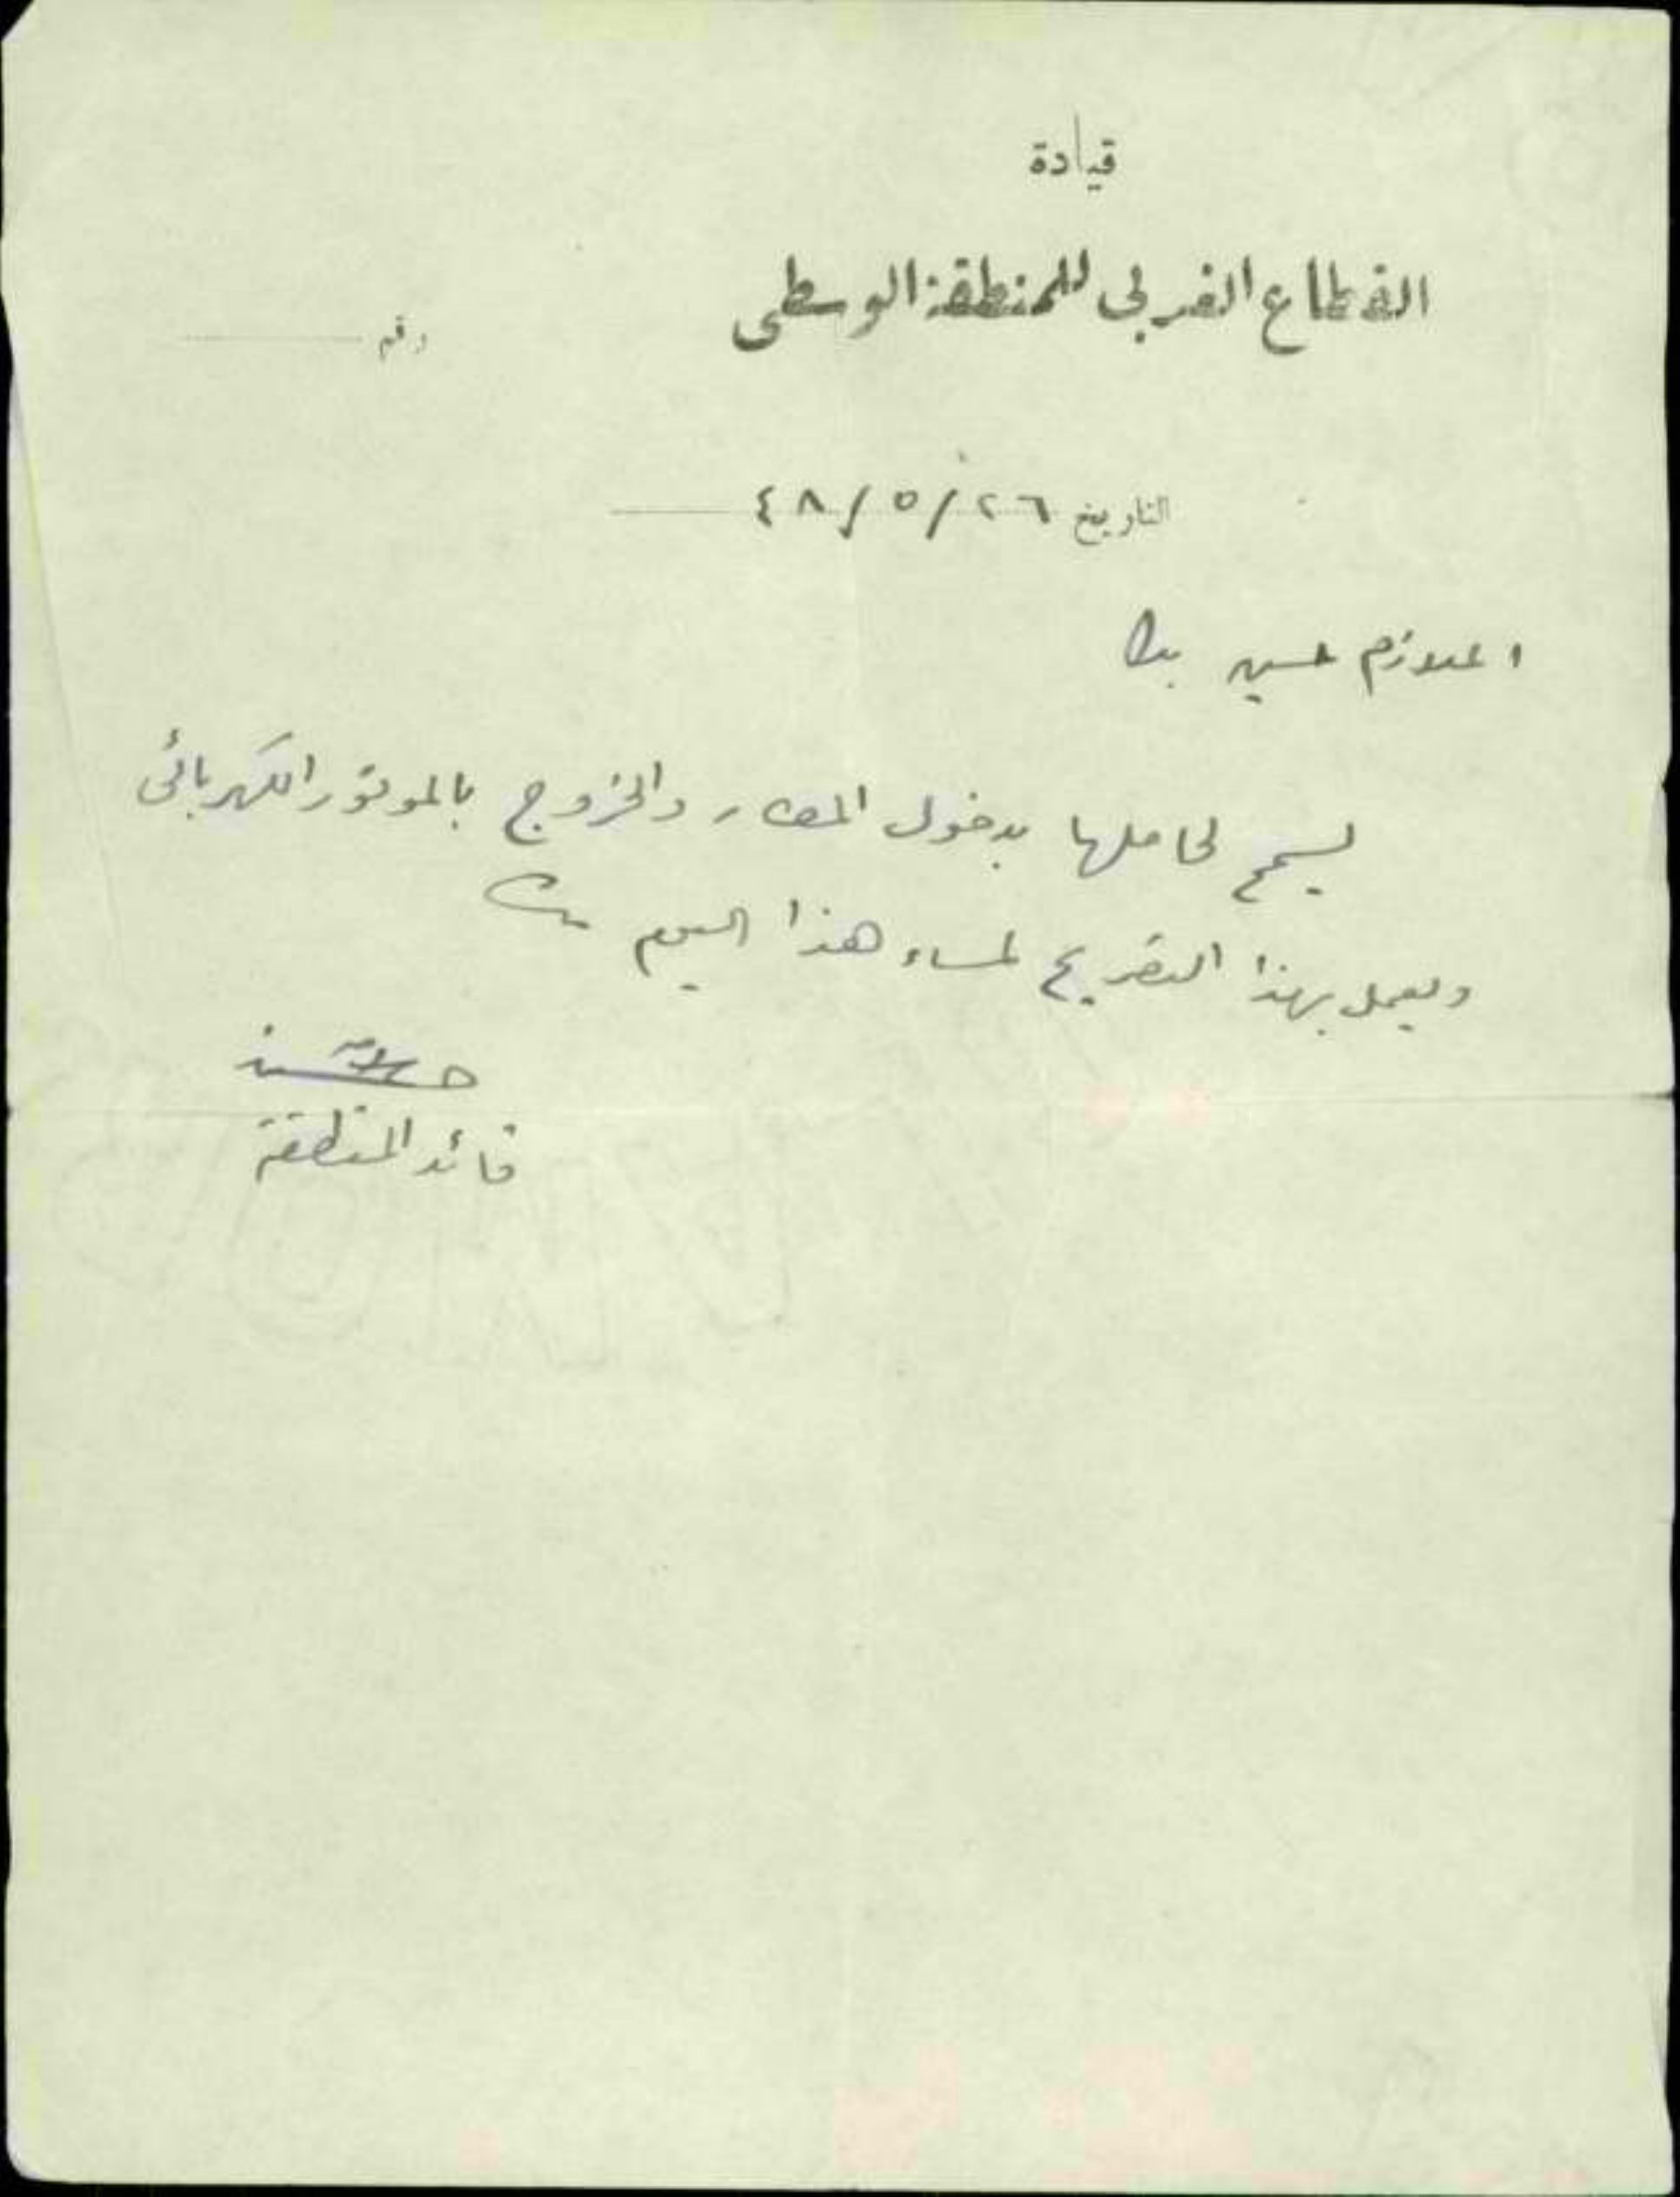 قيادة
القطاع الغربي للمنطقة الوسطى
رقم
التاريخ ٢٦/٥/٤٨
الملازم حسين بك
يسمح لحاملها بدخول المطار والخروج بالموتور الكهربائي
ويعمل بهذا التصريح لمساء هذا اليوم
قائد المنطقة